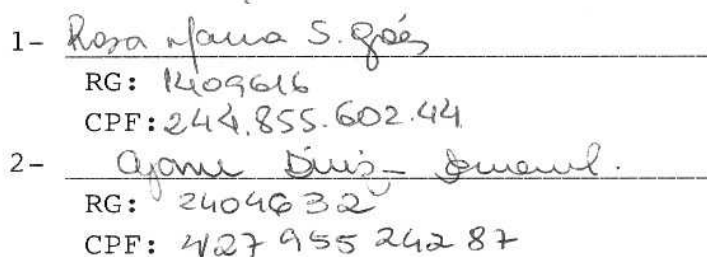 1- Rosa Maria S. Góes
RG: 1409616
CPF: 244.855.602.44
2- Diniz
RG: 2404632
CPF: 427 955 242 87